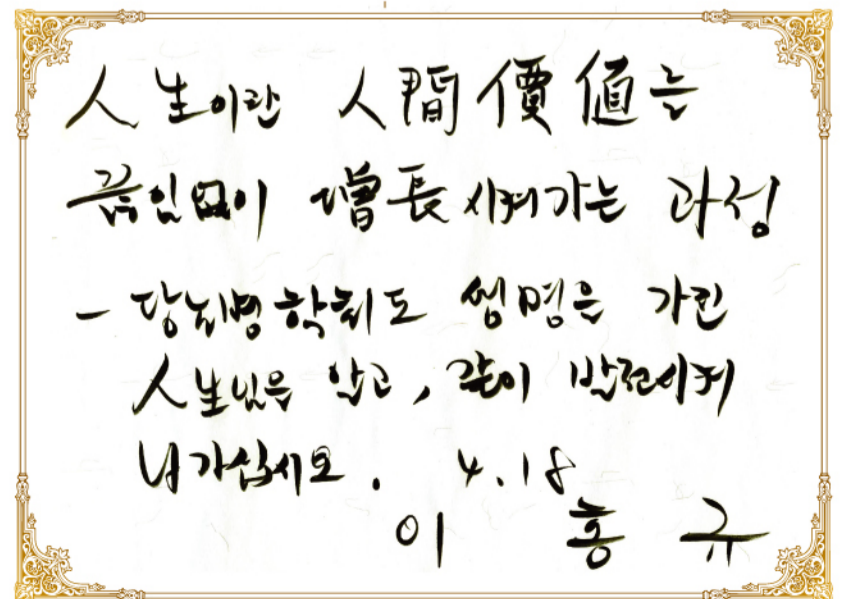 人生이란 人間價値는
끊임없이 增長시켜가는 과정
- 당뇨병학회도 생명을 가진
人生임을 알고, 같이 발전시켜
나가십시오. 4.18
이 홍 규